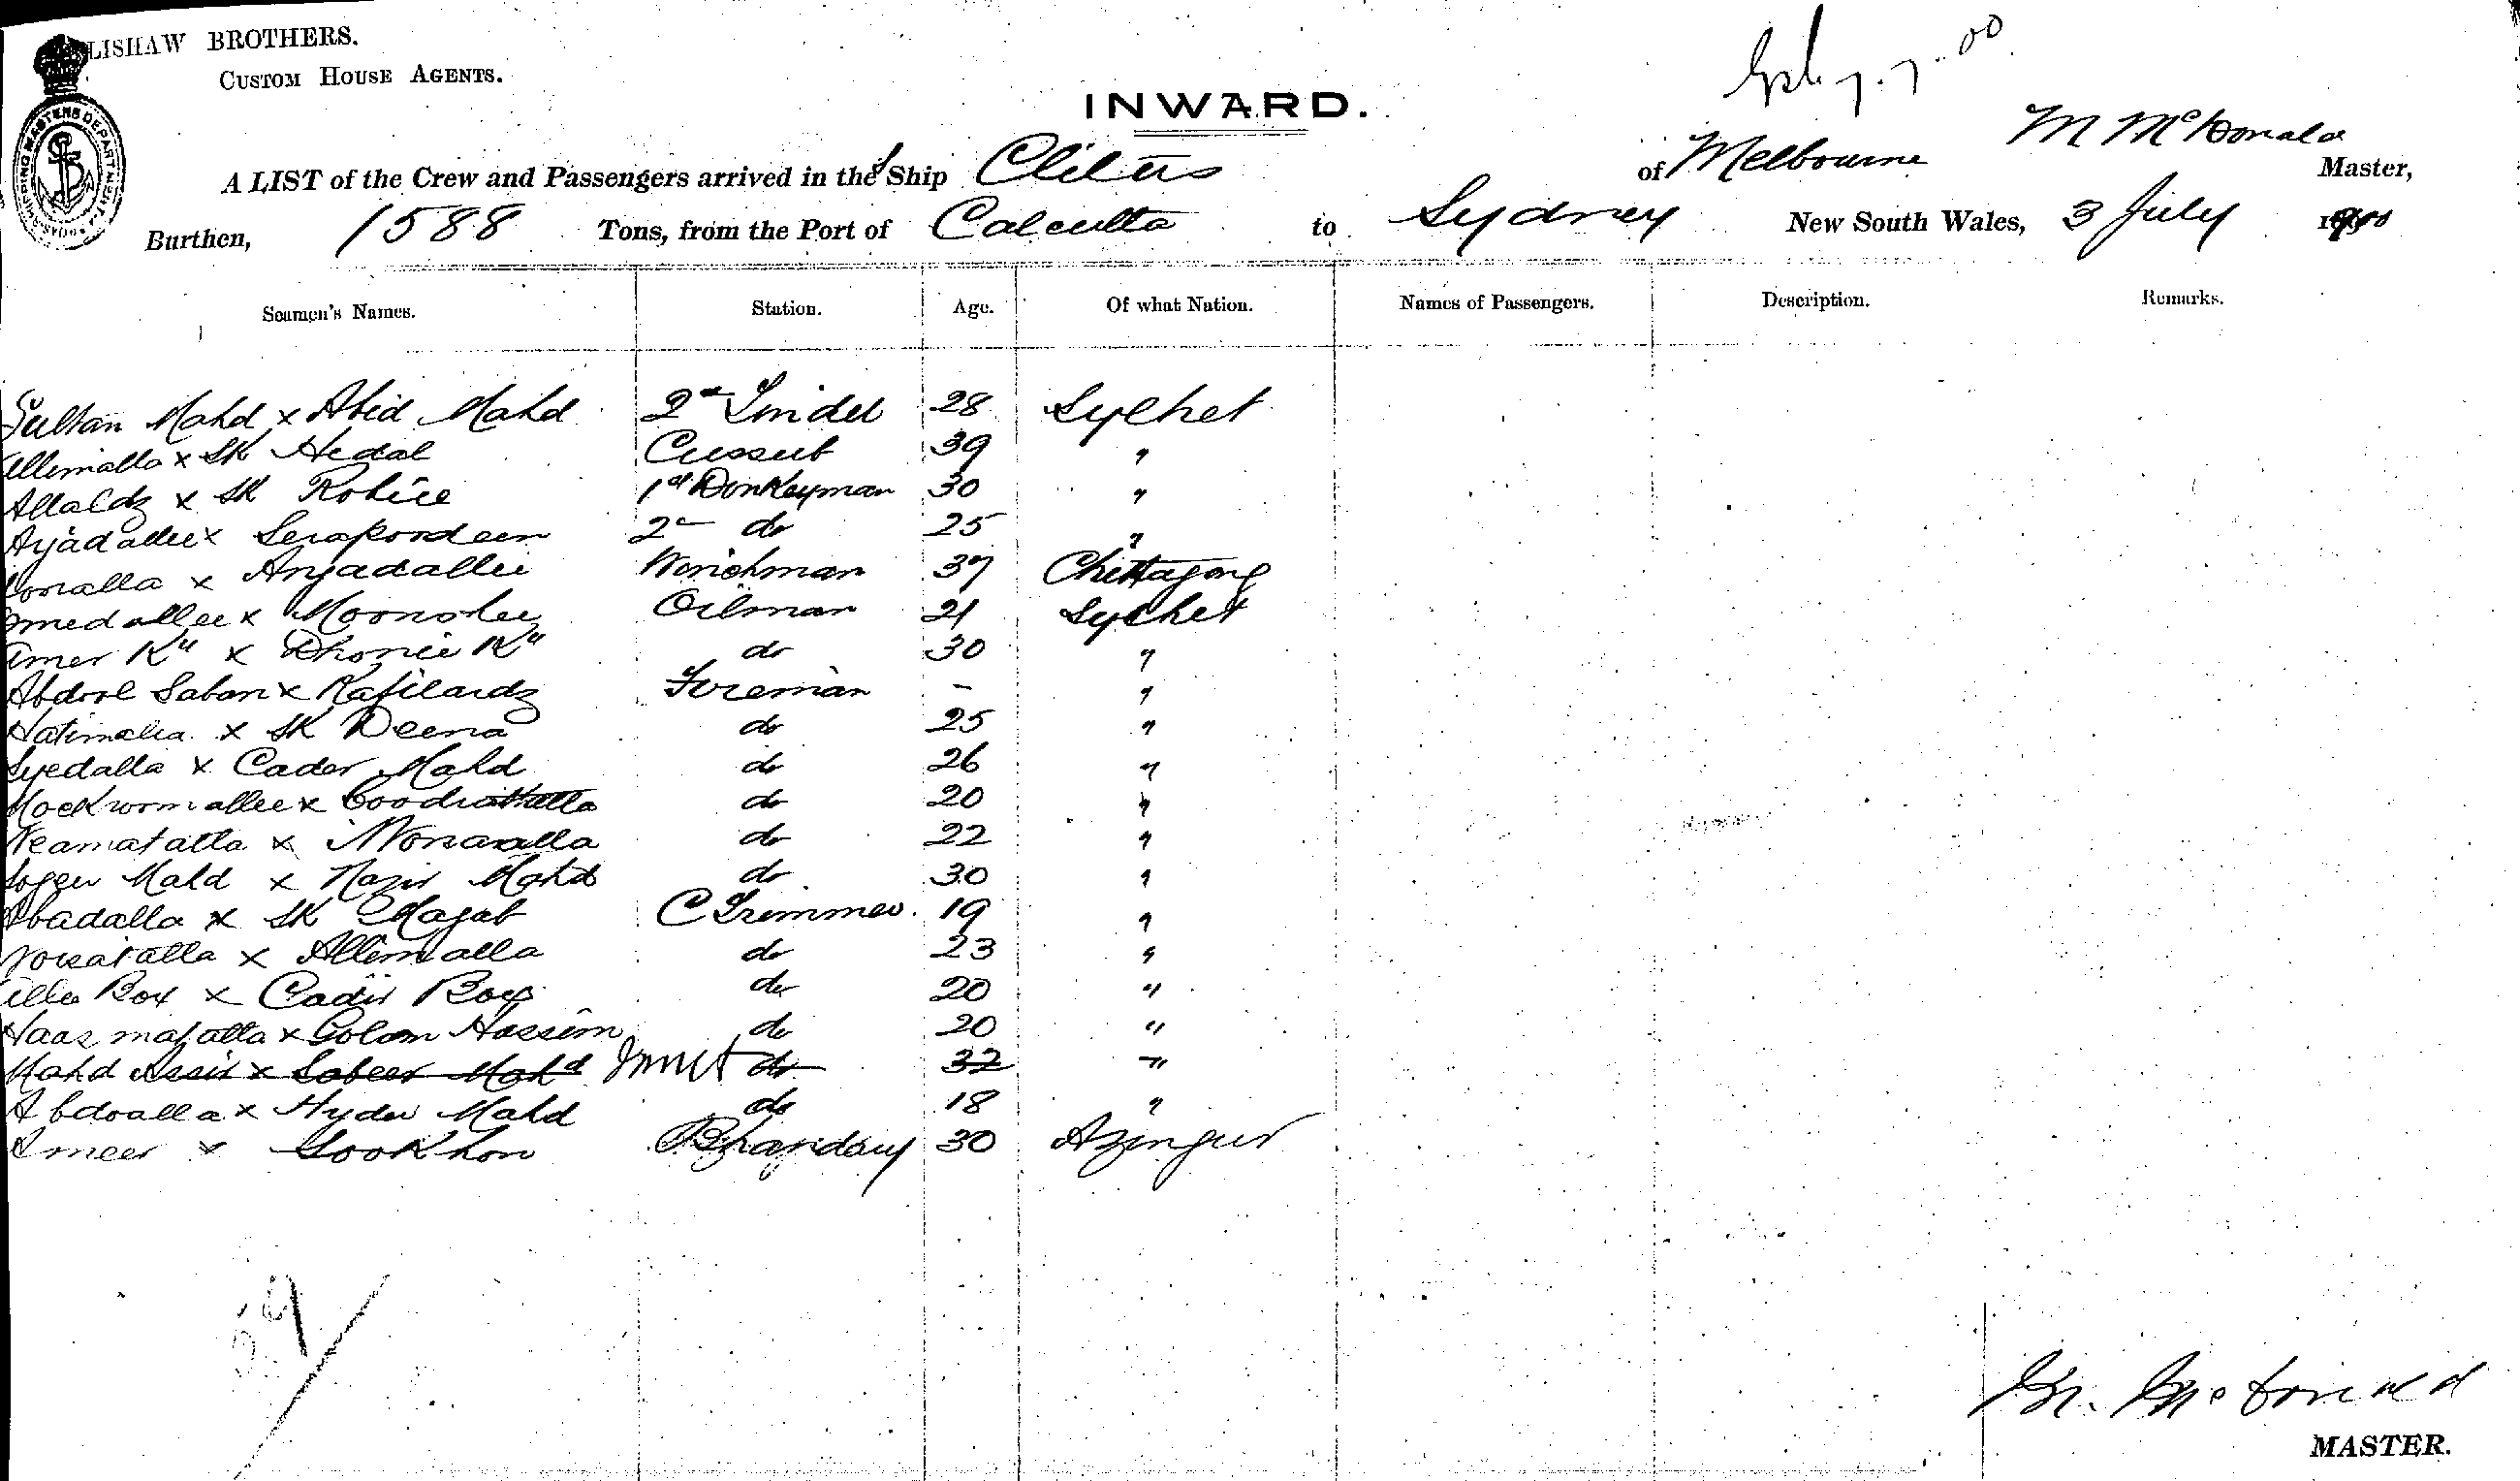 LISHAW BROTHERS.
CUSTOM HOUSE AGENTS.
7.7.00
INWARD.
SHIPPING MASTERS DEPARTMENT
A LIST of the Crew and Passengers arrived in the S Ship Clitus of Melbourne M McDonald Master,
Burthen, 1588 Tons, from the Port of Calcutta to Sydney New South Wales, 3 July 1900
Seamen's Names. Station. Age. Of what Nation. Names of Passengers. Description. Remarks.
Sultan Mahd x Abid Mahd 2nd Tindel 28 Sylhet
Allimalla x SK Hedal Cussub 39 "
Allaldz x SK Robice 1st Donkeyman 30 "
Ajadallee x Serapoordeen 2nd do 25 "
x Anjadallee Winchman 37 Chittagong
x Moonshee Oilman 21 Sylhet
Amer Kn x Dhonie Kn do 30 "
Abdool Saban x Kafilardz Fireman - "
Hatimalla x SK Deena do 25 "
Syedalla x Cader Mahd do 26 "
Mockromallee x Coodratalla do 20 "
Neamatalla x Monaralla do 22 "
Mahd x Nazir Mahd do 30 "
Abadalla x SK Majab C Trimmer. 19 "
x Allimalla do 23 "
Alla Box x Cadir Box do 20 "
Haasmatalla x Golam Hossim do 20 "
Mahd Assir x Sabeer Mahd do 32 "
Abdoalla x Hyder Mahd do 18 "
Ameer x Sookhon Bhandary 30 Azingur
M. McDonald
MASTER.